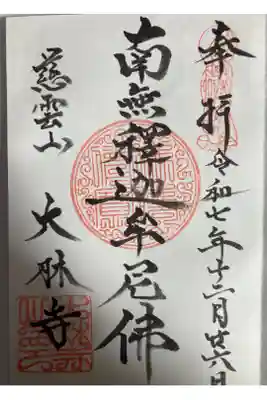 奉拝
令和七年十二月廿六日
南無釋迦牟尼佛
慈雲山
大林寺